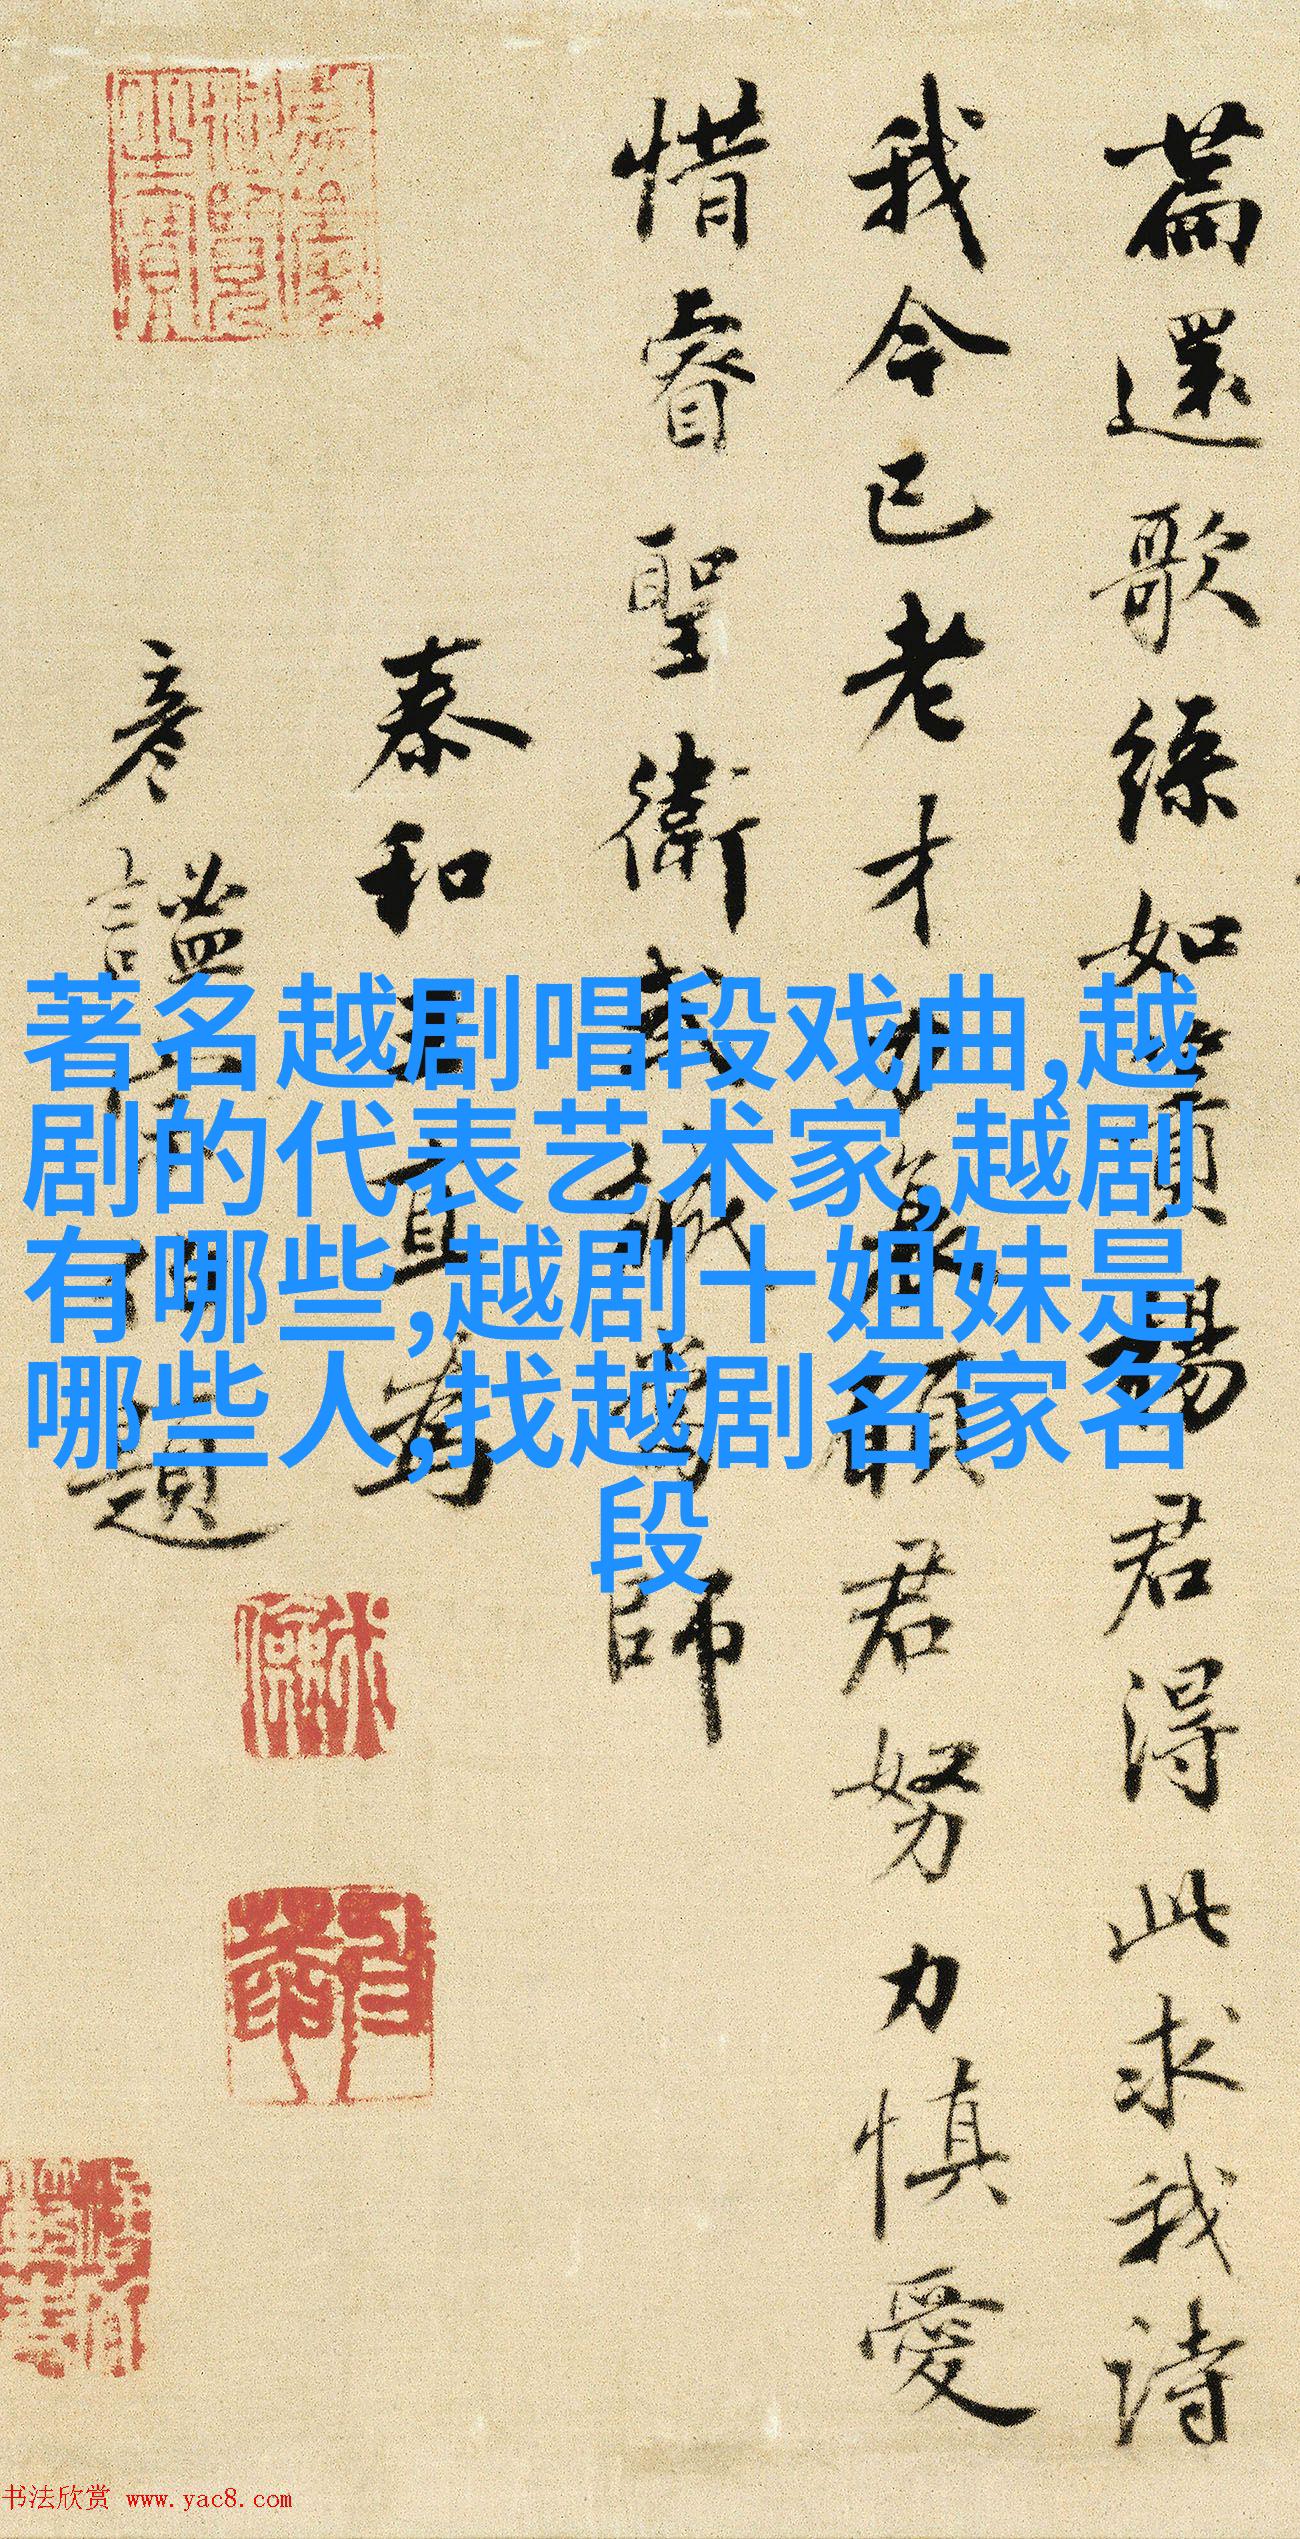 著名越剧唱段戏曲,越
剧的代表艺术家,越剧
有哪些,越剧十姐妹是
哪些人,找越剧名家名
段
篇還歌如君得此求我詩
我今已老才力衰顧君努力慎愛
惜睿聖衛武誠師
泰和王直為
彥謐題
书法欣赏 www.yac8.com